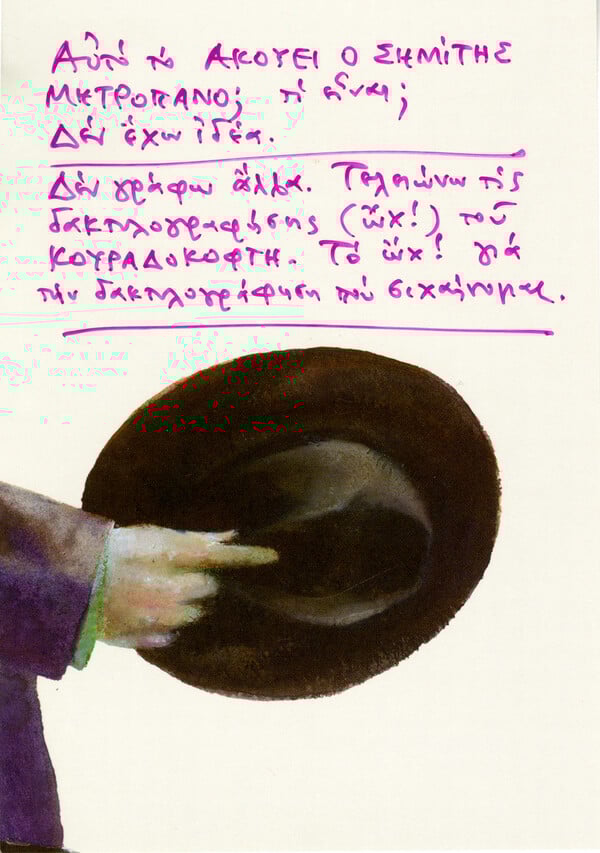 Αὐτό τό ΑΚΟΥΕΙ Ο ΣΗΜΙΤΗΣ
ΜΗΤΡΟΠΑΝΟ; τί εἶναι;
Δέν ἔχω ἰδέα.
Δέν γράφω ἄλλα. Τελειώνω τίς
δακτυλογραφήσης (ὤχ!) τοῦ
ΚΟΥΡΑΔΟΚΟΦΤΗ. Τό ὤχ! γιά
τήν δακτυλογράφηση πού σιχαίνομαι.